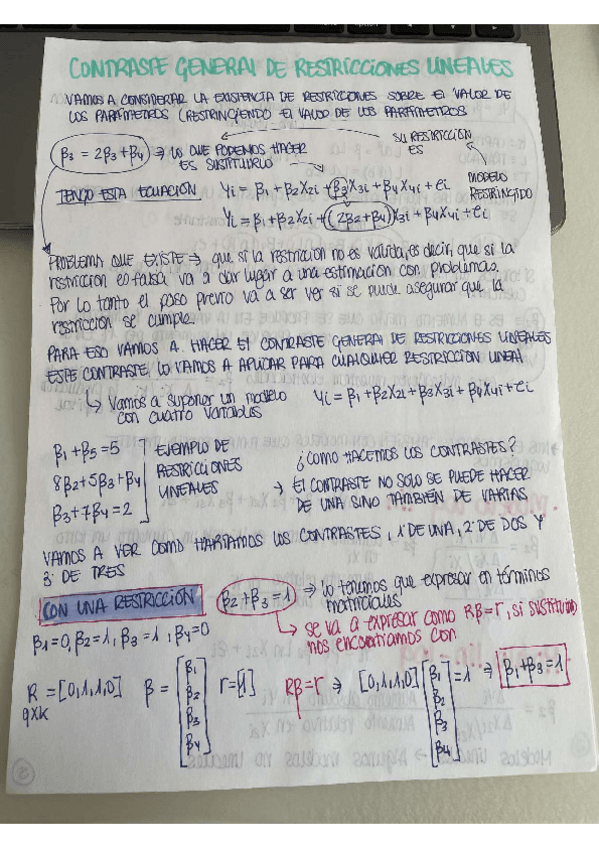 CONTRASTE GENERAL DE RESTRICCIONES LINEALES
VAMOS A CONSIDERAR LA EXISTENCIA DE RESTRICCIONES SOBRE EL VALOR DE
LOS PARÁMETROS (RESTRINGIENDO EL VALOR DE LOS PARÁMETROS
β3 = 2β3 + β4 ⇒ LO QUE PODEMOS HACER
ES SUSTITUIRLO
SU RESTRICCIÓN
ES
TENGO ESTA ECUACIÓN Yi = β1 + β2X2i + β3X3i + β4X4i + ei
MODELO
RESTRINGIDO
Yi = β1 + β2X2i + (2β2 + β4)X3i + β4X4i + ei
PROBLEMA QUE EXISTE ⇒ que si la restricción no es valida, es decir, que si la
restricción es falsa va a dar lugar a una estimación con problemas.
Por lo tanto el paso previo va a ser ver si se puede asegurar que la
restricción se cumple.
PARA ESO VAMOS A HACER EL CONTRASTE GENERAL DE RESTRICCIONES LINEALES
ESTE CONTRASTE LO VAMOS A APLICAR PARA CUALQUIER RESTRICCIÓN LINEAL
↳ Vamos a suponer un modelo
con cuatro variables
Yi = β1 + β2X2i + β3X3i + β4X4i + ei
β1 + β5 = 5
8β2 + 5β3 + β4
β3 + 7β4 = 2
EJEMPLO DE
RESTRICCIONES
LINEALES
¿COMO HACEMOS LOS CONTRASTES?
→ El CONTRASTE NO SOLO SE PUEDE HACER
DE UNA SINO TAMBIÉN DE VARIAS
VAMOS A VER COMO HARÍAMOS LOS CONTRASTES, 1º DE UNA, 2º DE DOS Y
3º DE TRES
CON UNA RESTRICCIÓN β2 + β3 = 1 → lo tenemos que expresar en términos
matriciales
→ se va a expresar como Rβ = r, si sustituimos
nos encontramos con
β1 = 0, β2 = 1, β3 = 1, β4 = 0
R = [0,1,1,0] β = [β1 β2 β3 β4] r = [1] Rβ = r ⇒ [0,1,1,0] [β1 β2 β3 β4] = 1 ⇒ β1 + β3 = 1
qxk